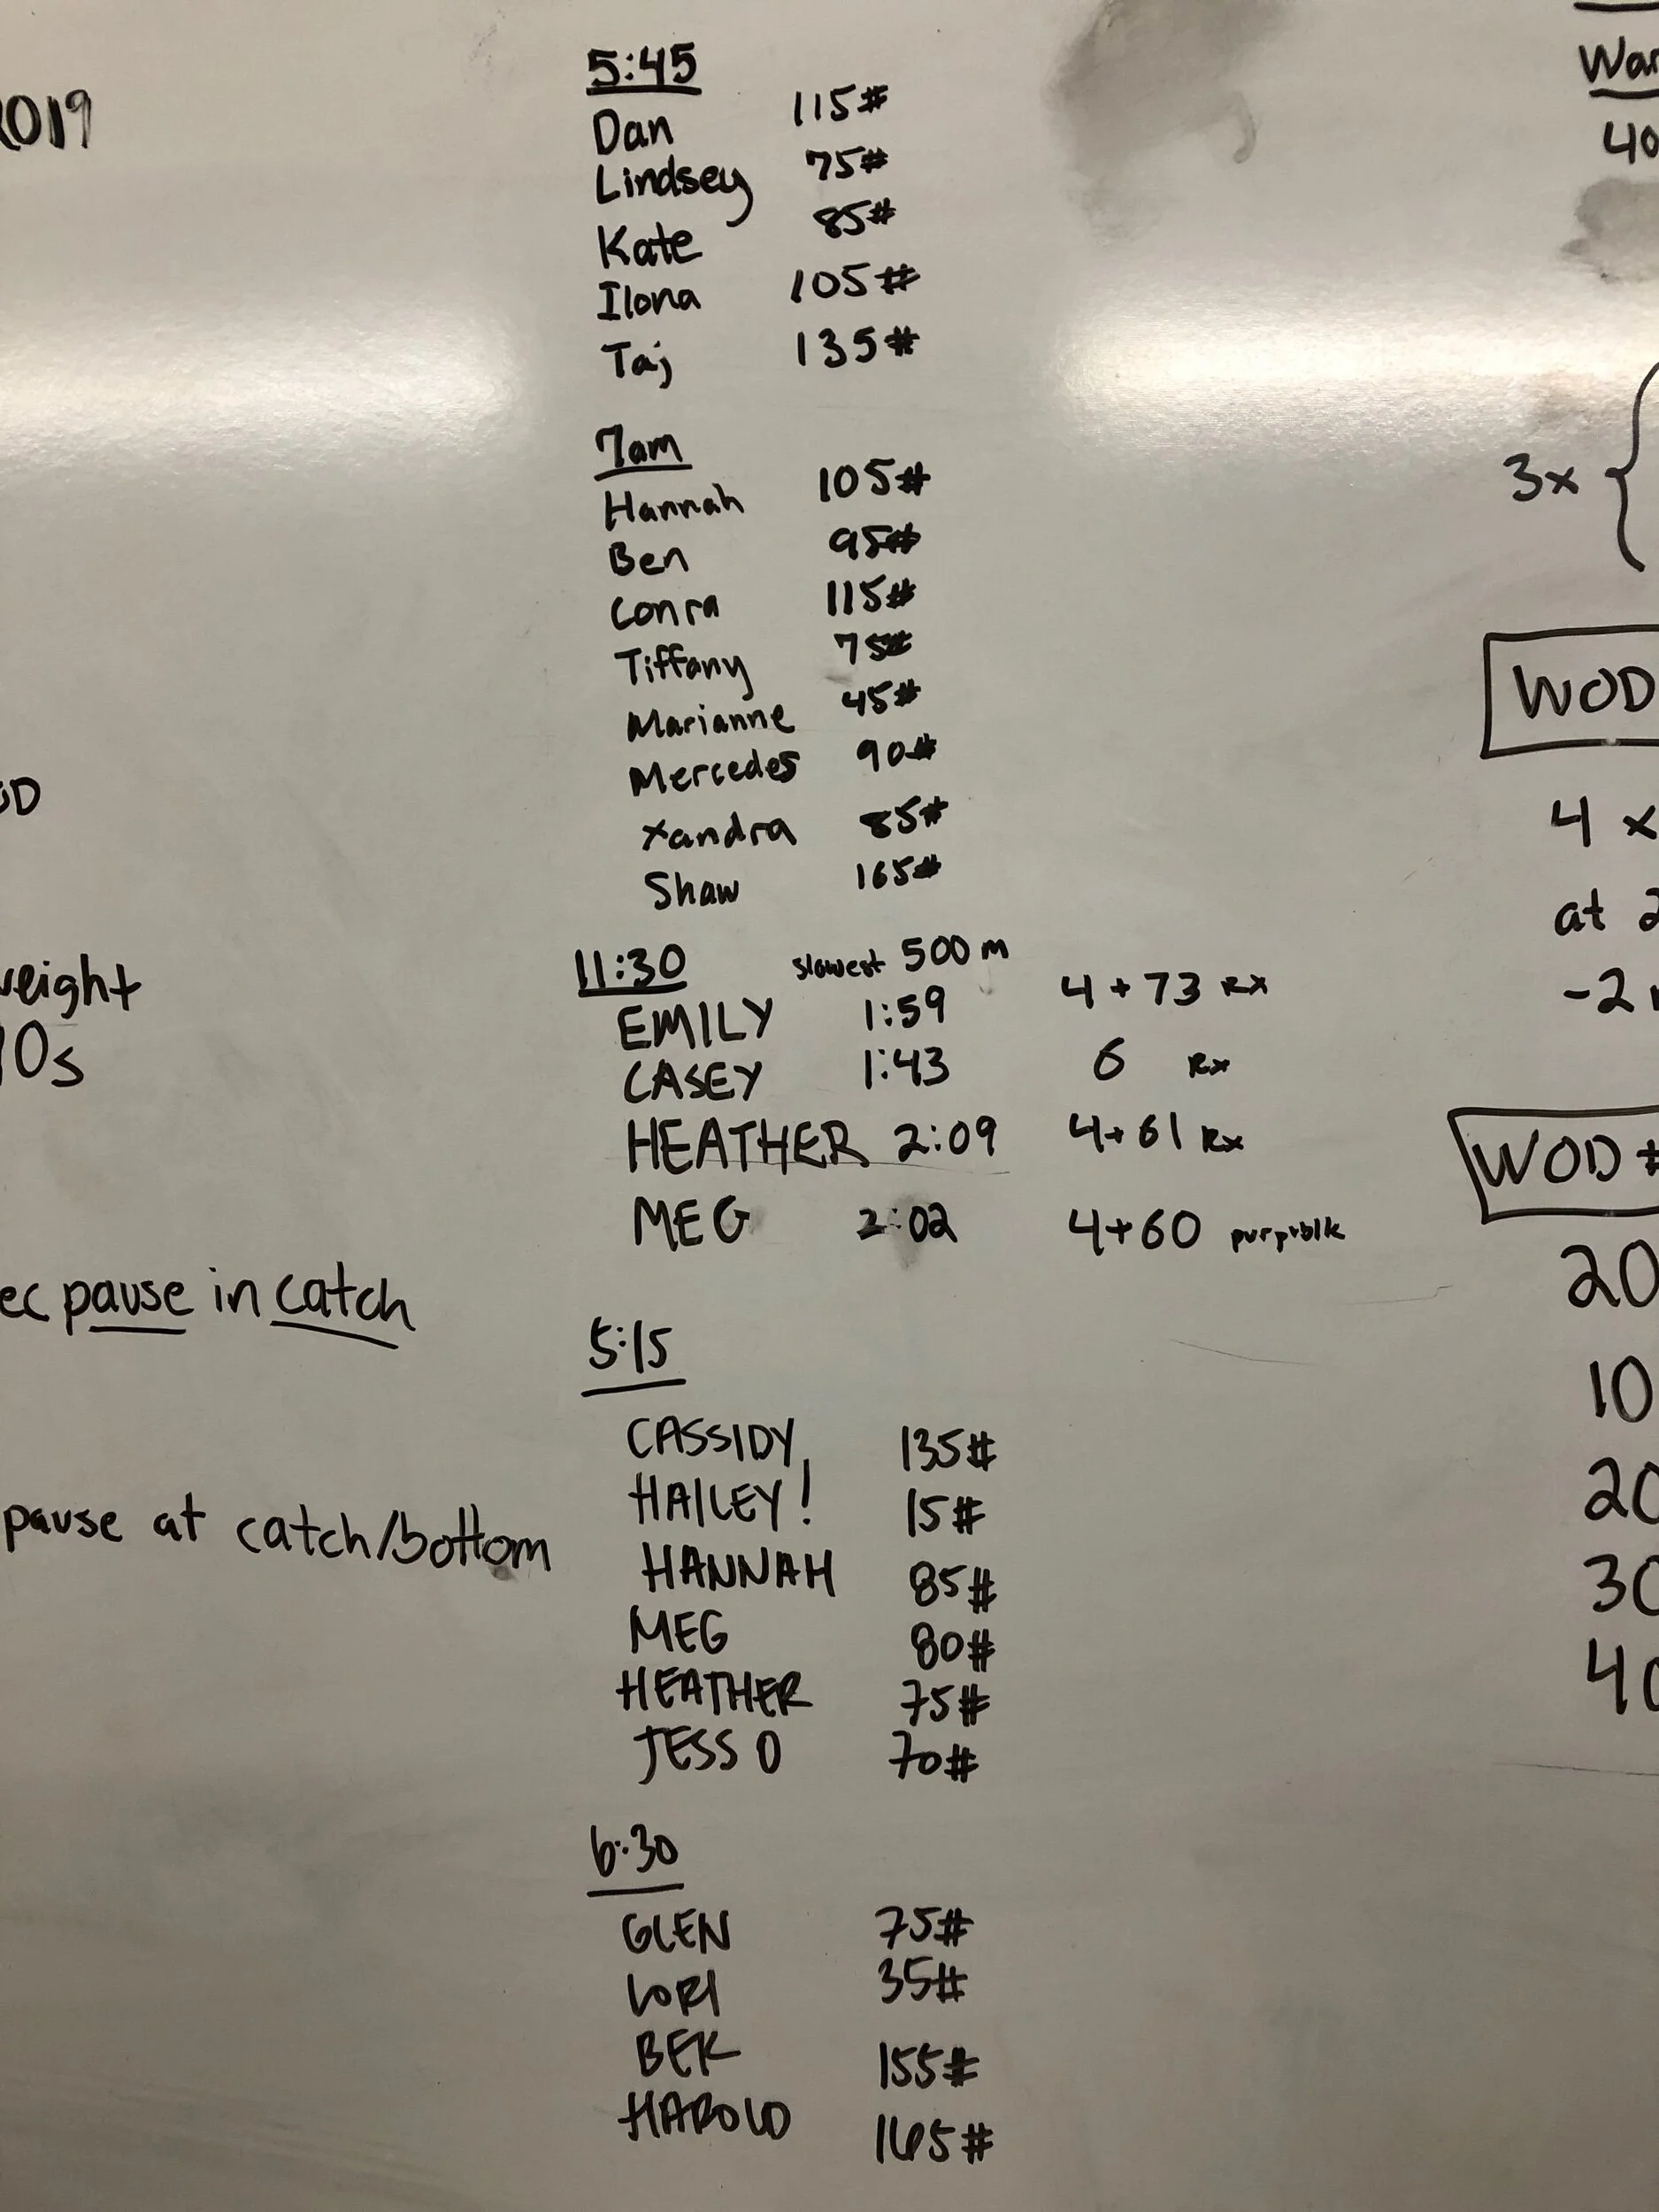 2019
OD
weight
10s
ec pause in catch
pause at catch/bottom
5:45
Dan 115#
Lindsey 75#
Kate 85#
Ilona 105#
Taj 135#
7am
Hannah 105#
Ben 95#
Conra 115#
Tiffany 75#
Marianne 45#
Mercedes 90#
Xandra 85#
Shaw 165#
11:30 slowest 500 m
EMILY 1:59 4 + 73 Rx
CASEY 1:43 6 Rx
HEATHER 2:09 4+61 Rx
MEG 2:02 4+60 purp+blk
5:15
CASSIDY 135#
HAILEY! 15#
HANNAH 85#
MEG 80#
HEATHER 75#
JESS O 70#
6:30
GLEN 75#
LORI 35#
BEK 155#
HAROLD 165#
War
40
3x {
WOD
4 x
at 2
-2
WOD #
20
10
20
30
40